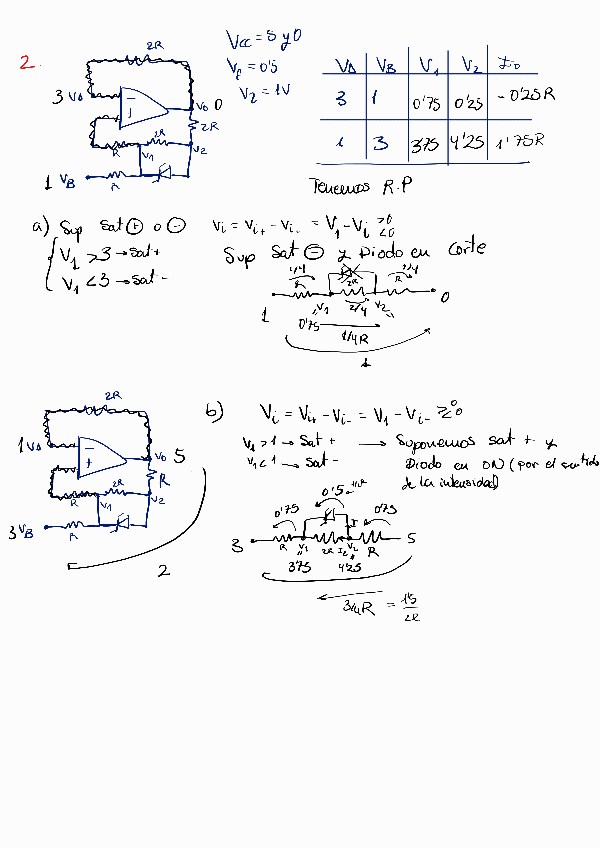 2.
2R
3 VA
V0 0
2R
R 2R
V1 V2
1 VB R
Vcc = 5 y 0
Vf = 0'5
V2 = 1V
VA VB V1 V2 Io
3 1 0'75 0'25 -0'25R
1 3 3'75 4'25 1'75R
Tenemos R.P
a) Sup Sat + o -
V1 > 3 → sat +
V1 < 3 → sat -
Vi = Vi+ - Vi- = V1 - Vi >0 <0
Sup Sat - y Diodo en corte
1/4
R 2R R
1 V1 2/4 V2 0
0'75
1/4R
1
2R
1 VA
V0 5
R
R 2R
V1 V2
3 VB R
2
b) Vi = Vi+ - Vi- = V1 - Vi- ≷ 0
V1 > 1 → Sat + → Suponemos sat + y
V1 < 1 → Sat - Diodo en ON (por el sentido
de la intensidad)
0'5
0'75 0'75
3 R V1 2R I2 V2 R 5
3'75 4'25
3/4R = 1'5/2R